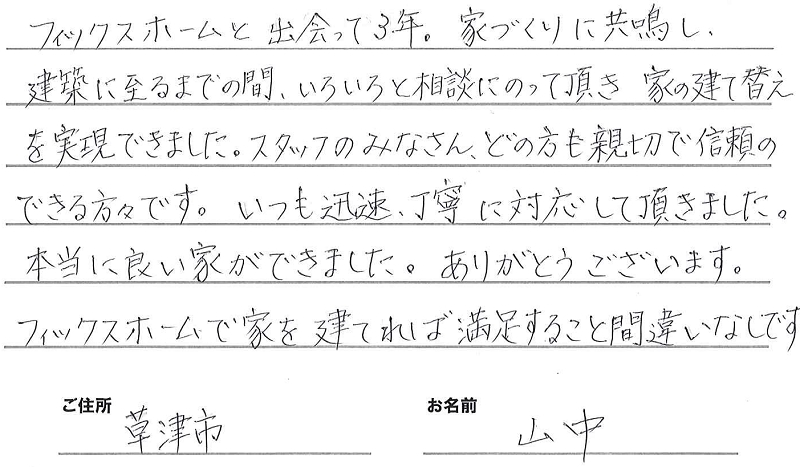 フィックスホームと出会って3年。家づくりに共鳴し、
建築に至るまでの間、いろいろと相談にのって頂き 家の建て替え
を実現できました。スタッフのみなさん、どの方も親切で信頼の
できる方々です。いつも迅速、丁寧に対応して頂きました。
本当に良い家ができました。ありがとうございます。
フィックスホームで家を建てれば満足すること間違いなしです
ご住所 草津市 お名前 山中